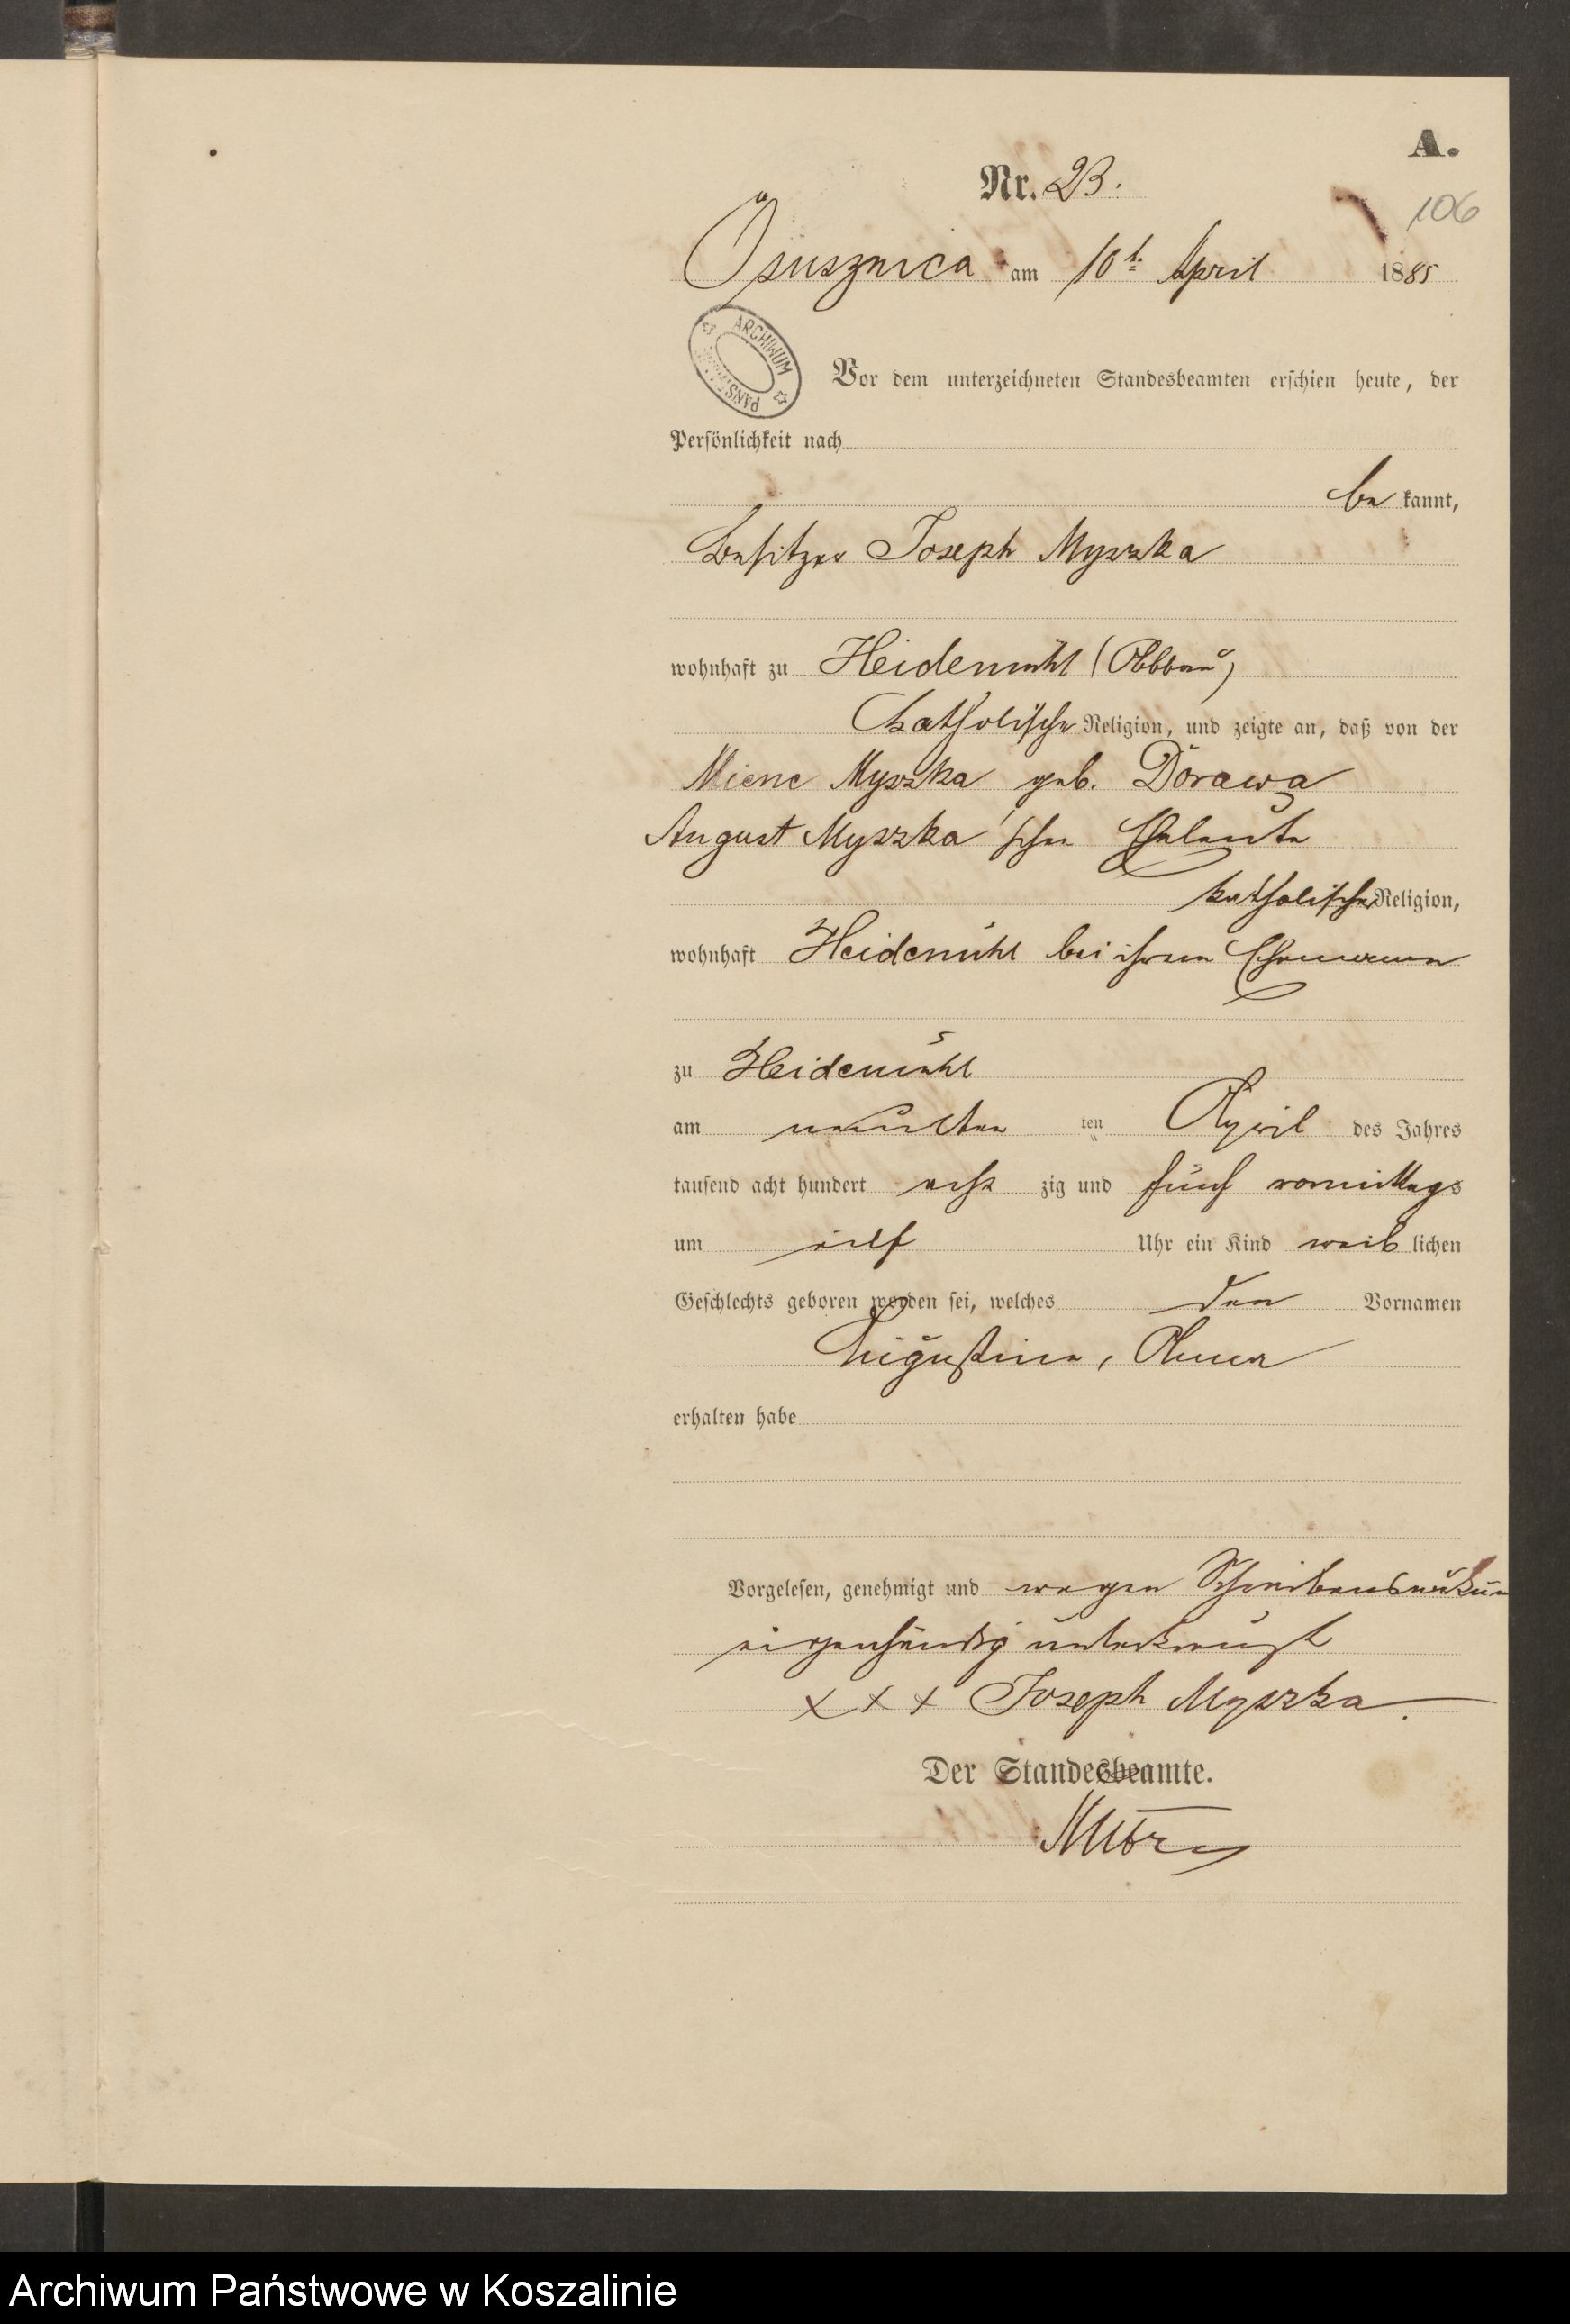 A.
Nr. 23.
106
Osusznica am 10t. April 1885
ARCHIWUM
PAŃST
Vor dem unterzeichneten Standesbeamten erschien heute, der
Persönlichkeit nach
be kannt,
Besitzer Joseph Myszka
wohnhaft zu Heidemühl (Abbau)
katholischer Religion, und zeigte an, daß von der
Miene Myszka geb. Dorawa
August Myszka'schen Eheleute
katholischer Religion,
wohnhaft Heidemühl bei ihrem Ehemann
zu Heidemühl
am neunten ten April des Jahres
tausend acht hundert acht zig und fünf vormittags
um eilf Uhr ein Kind weib lichen
Geschlechts geboren worden sei, welches den Vornamen
Augustine, Anna
erhalten habe
Vorgelesen, genehmigt und wegen
eigenhändig unterkreuzt
xxx Joseph Myszka.
Der Standesbeamte.
Archiwum Państwowe w Koszalinie